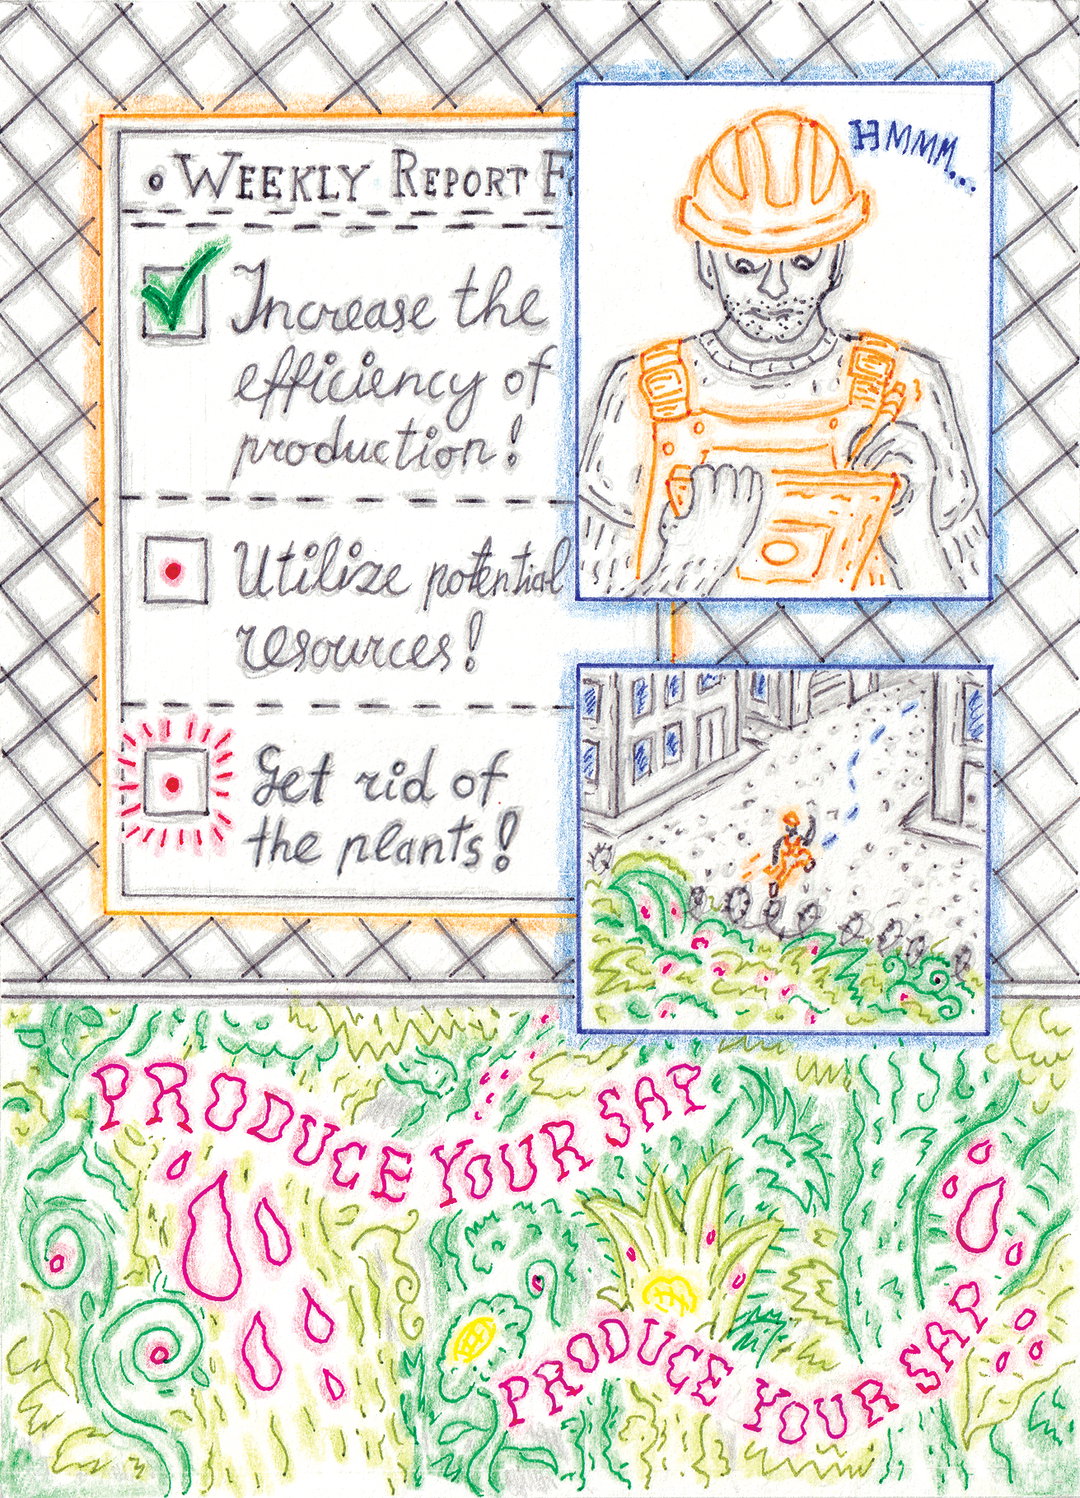 WEEKLY REPORT F
HMMM...
Increase the
efficiency of
production!
Utilize potential
resources!
Get rid of
the plants!
PRODUCE YOUR SAY
PRODUCE YOUR SAP